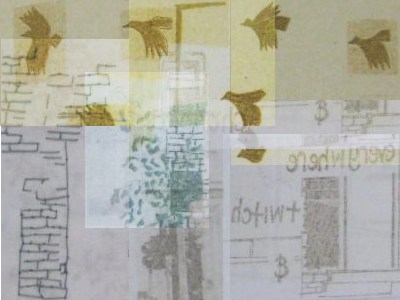 $
everywhere
twitch
$